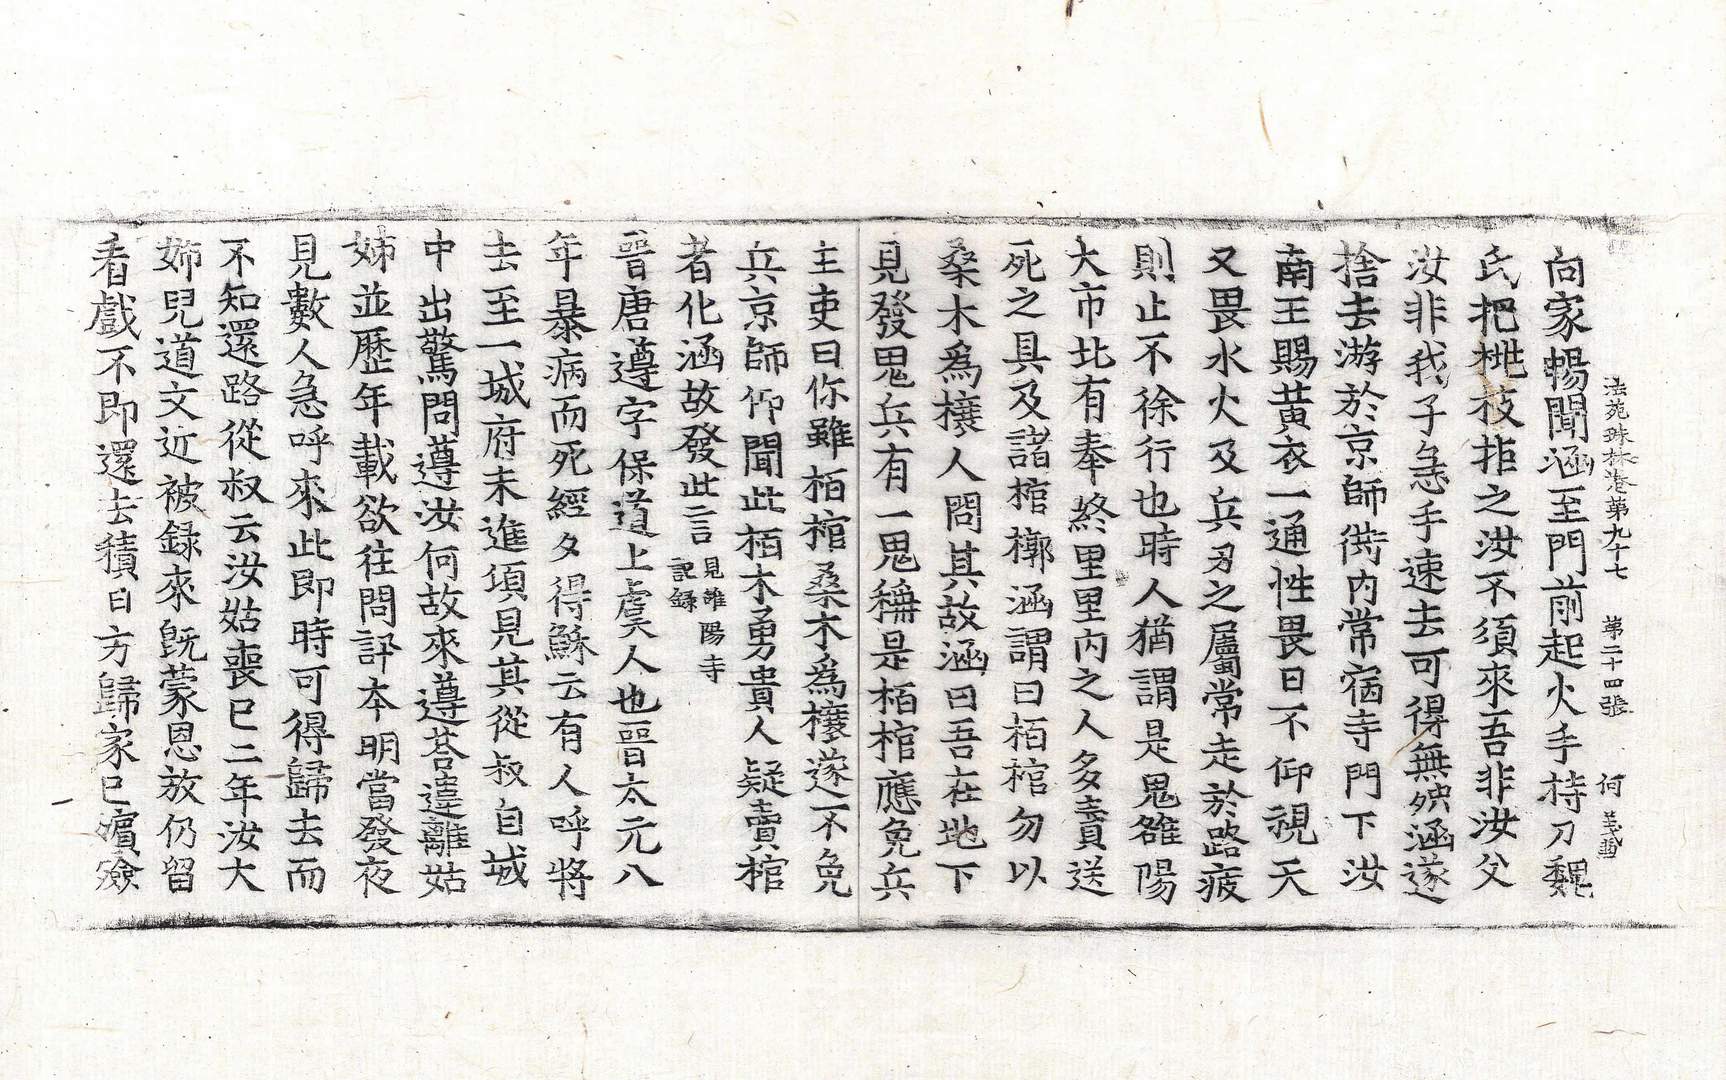 法苑珠林卷第九十七 第二十四張 何
向家暢聞涵至門前起火手持刀魏
氏把桃枝拒之汝不須來吾非汝父
汝非我子急手速去可得無殃涵遂
捨去游於京師街內常宿寺門下汝
南王賜黃衣一通性畏日不仰視天
又畏水火及兵刃之屬常走於路疲
則止不徐行也時人猶謂是鬼雒陽
大市北有奉終里里內之人多賣送
死之具及諸棺槨涵謂曰栢棺勿以
桑木為欀人問其故涵曰吾在地下
見發鬼兵有一鬼稱是栢棺應免兵
主吏曰你雖栢棺桑木為欀遂不免
兵京師仰聞此栢木勇貴人疑賣棺
者化涵故發此言 見雒陽寺記錄
晉唐遵字保道上虞人也晉太元八
年暴病而死經夕得蘇云有人呼將
去至一城府未進須見其從叔自城
中出驚問遵汝何故來遵荅違離姑
姊並歷年載欲往問訊本明當發夜
見數人急呼來此即時可得歸去而
不知還路從叔云汝姑喪已二年汝大
姊兒道文近被錄來既蒙恩放仍留
看戲不即還去積日方歸家已殯殮